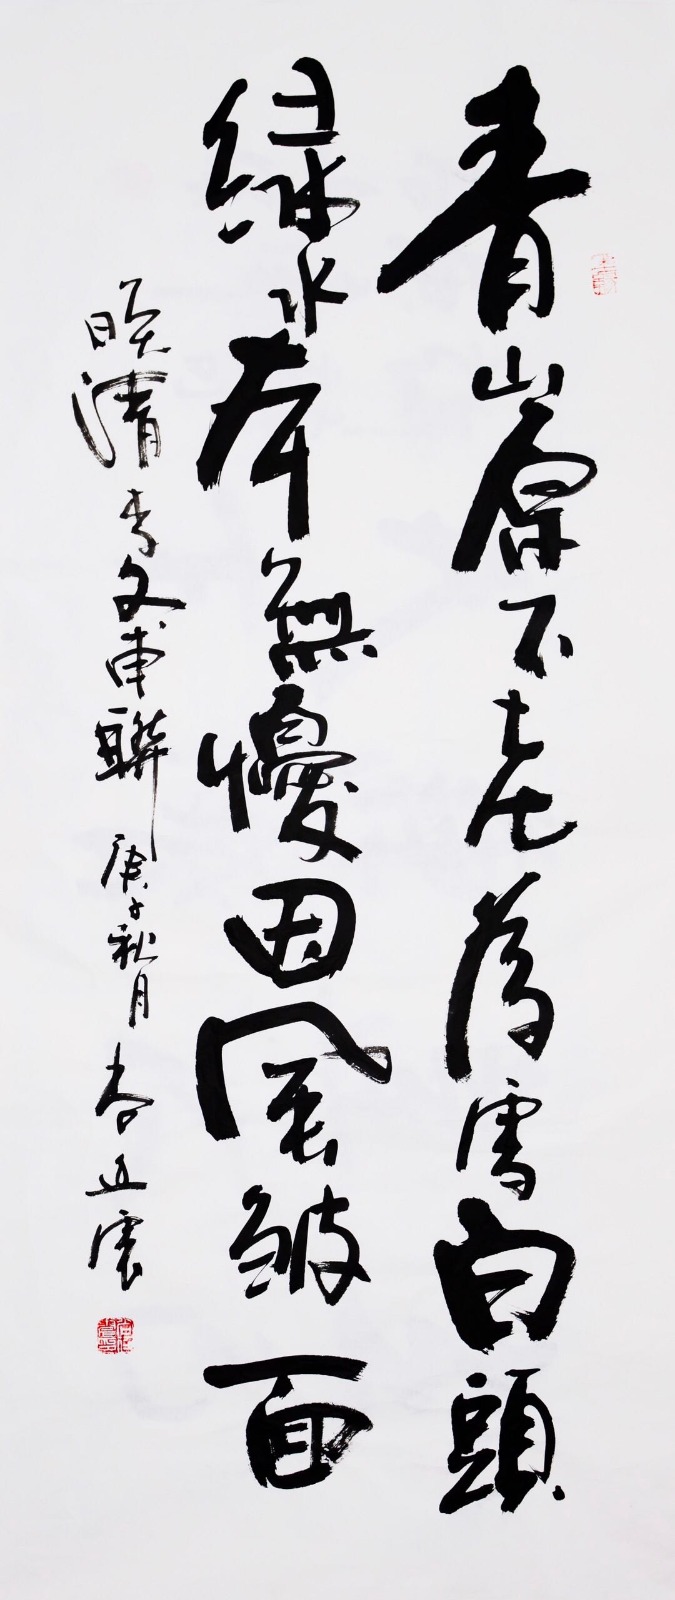 青山原不老為雪白頭
綠水本無懮因風皺面
晚清李文甫聯 庚子秋月